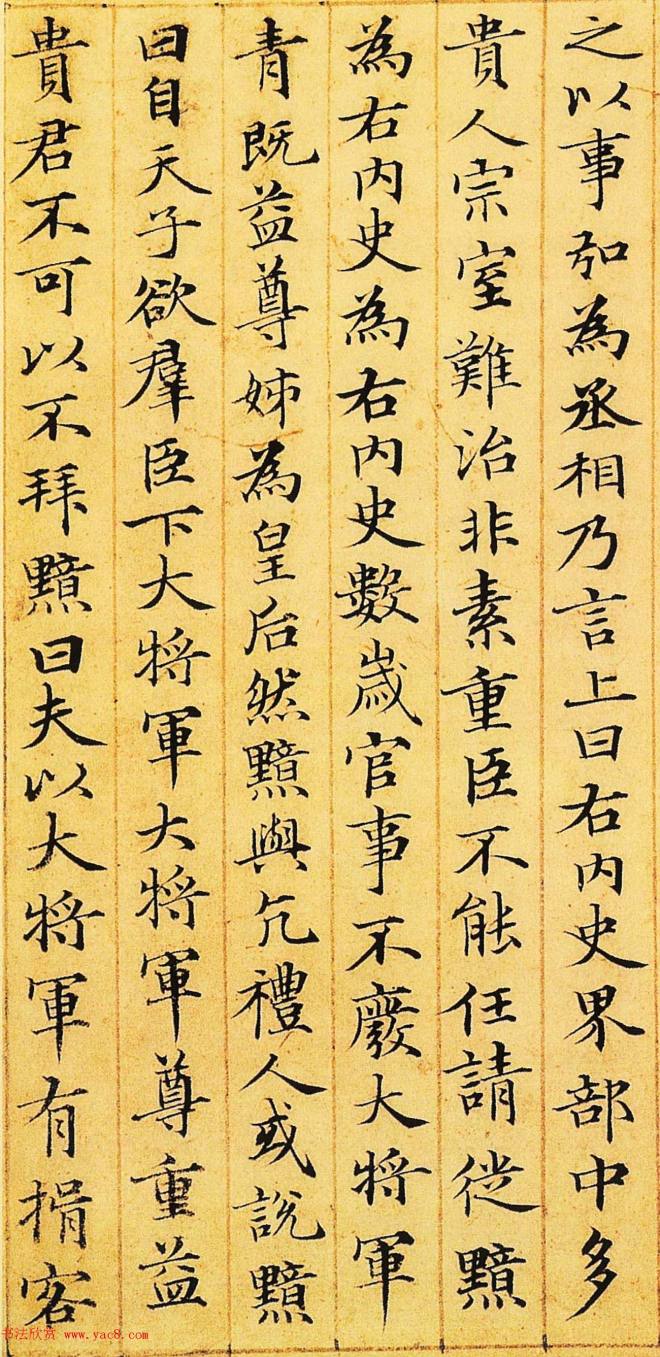 之以事弘為丞相乃言上曰右内史界部中多
貴人宗室難治非素重臣不能任請徙黯
為右内史為右内史數歲官事不廢大将軍
青既益尊姊為皇后然黯與亢禮人或說黯
曰自天子欲羣臣下大将軍大将軍尊重益
貴君不可以不拜黯曰夫以大将軍有揖客
书法欣赏 www.yac8.com